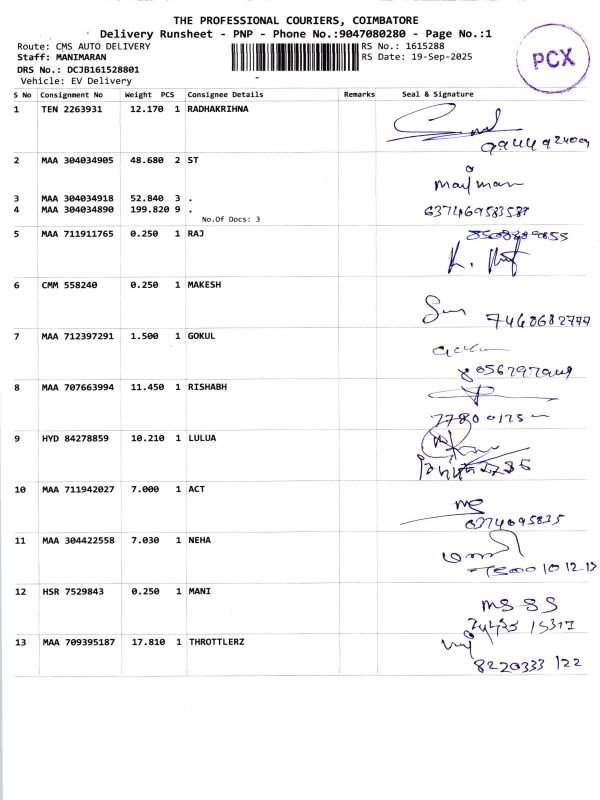 THE PROFESSIONAL COURIERS, COIMBATORE
Delivery Runsheet - PNP - Phone No.:9047080280 - Page No.:1
Route: CMS AUTO DELIVERY RS No.: 1615288
Staff: MANIMARAN RS Date: 19-Sep-2025
DRS No.: DCJB161528801
Vehicle: EV Delivery
PCX
S No Consignment No Weight PCS Consignee Details Remarks Seal & Signature
1 TEN 2263931 12.170 1 RADHAKRIHNA
2 MAA 304034905 48.680 2 ST
3 MAA 304034918 52.840 3 .
4 MAA 304034890 199.820 9 .
No.Of Docs: 3
5 MAA 711911765 0.250 1 RAJ
6 CMM 558240 0.250 1 MAKESH
7468682777
7 MAA 712397291 1.500 1 GOKUL
8 MAA 707663994 11.450 1 RISHABH
9 HYD 84278859 10.210 1 LULUA
10 MAA 711942027 7.000 1 ACT
6374695835
11 MAA 304422558 7.030 1 NEHA
12 HSR 7529843 0.250 1 MANI
13 MAA 709395187 17.810 1 THROTTLERZ
8220333122